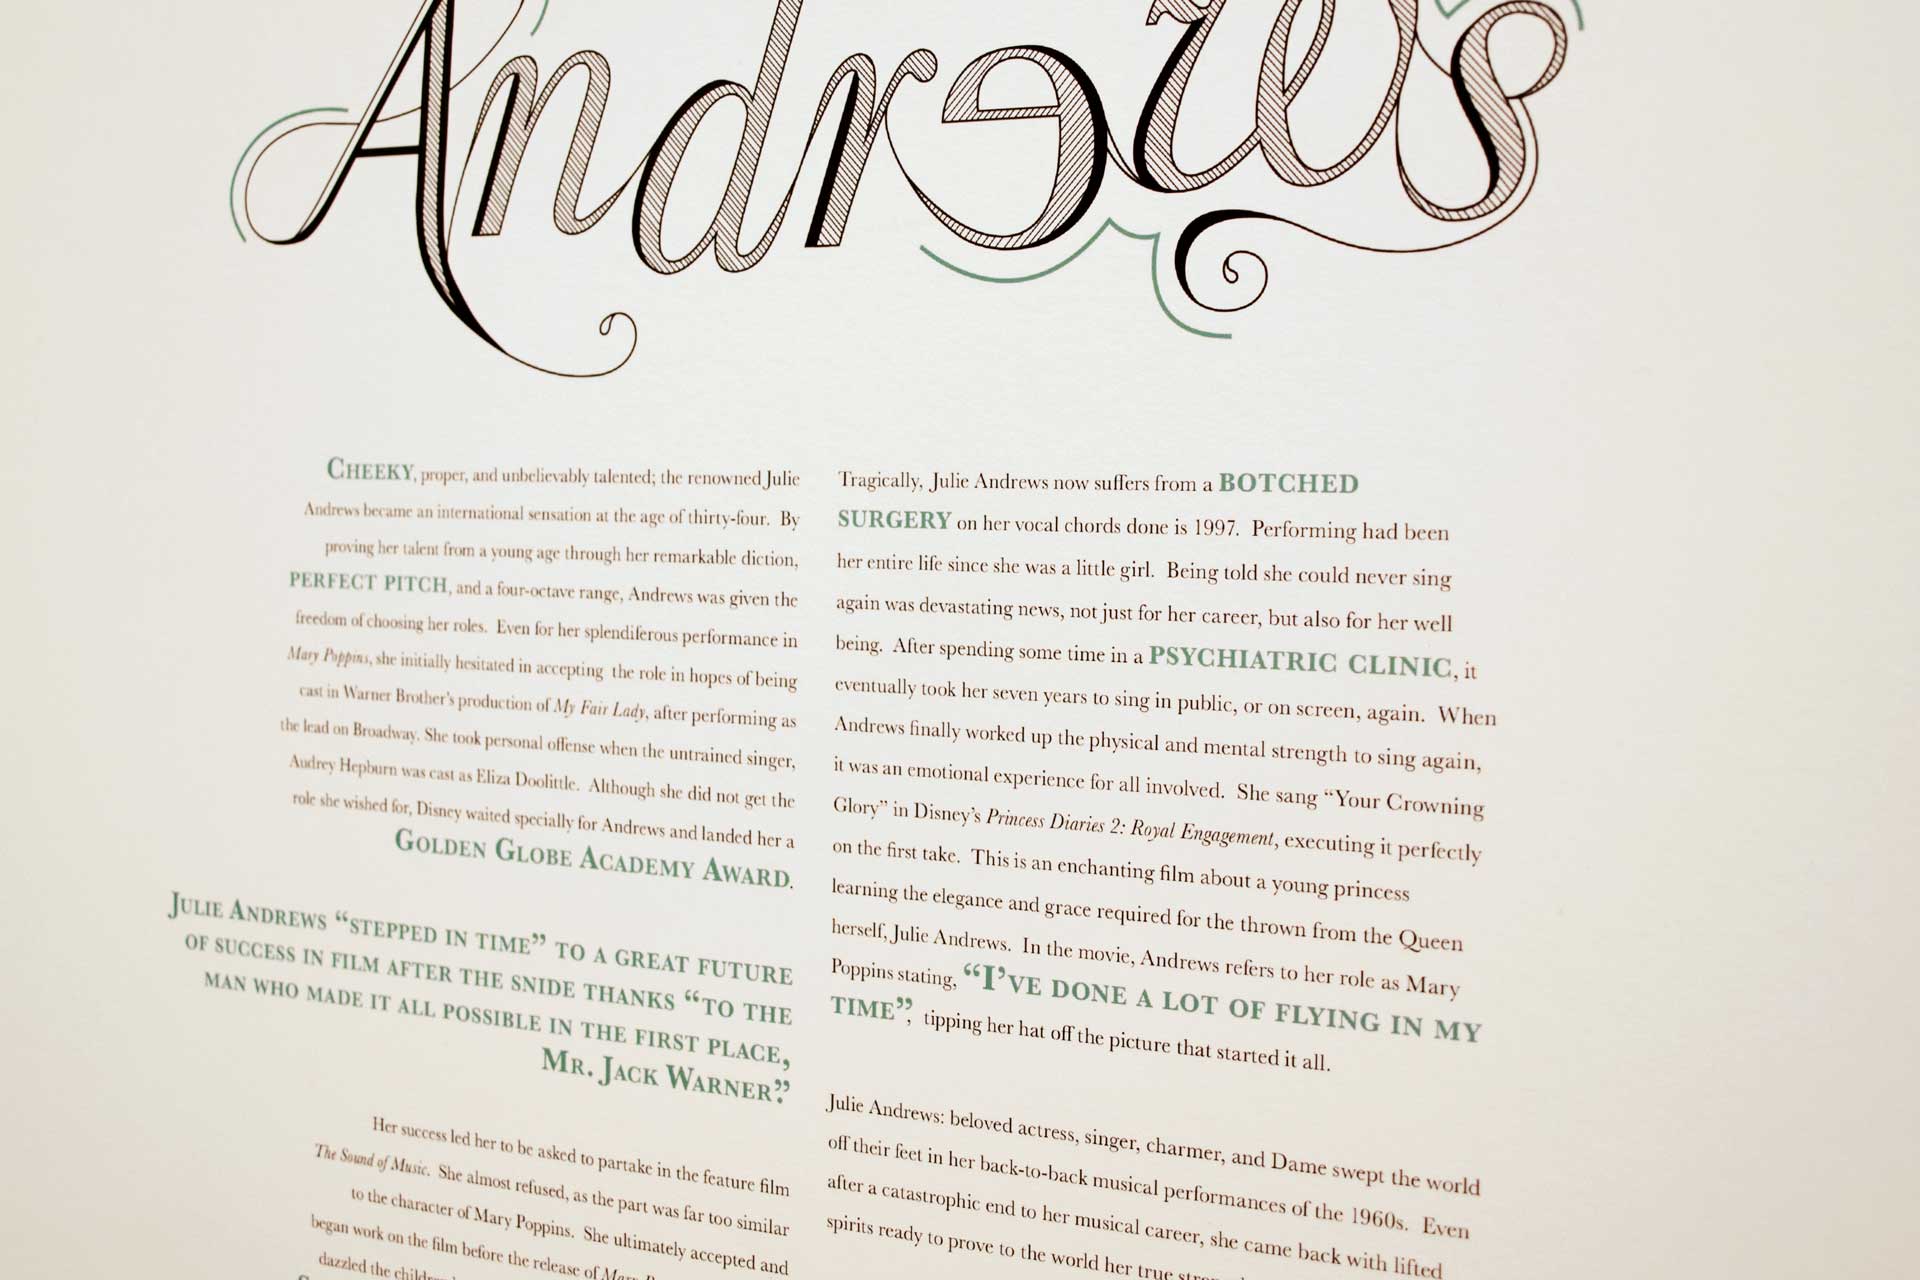 Andrews
CHEEKY, proper, and unbelievably talented; the renowned Julie
Andrews became an international sensation at the age of thirty-four. By
proving her talent from a young age through her remarkable diction,
PERFECT PITCH, and a four-octave range, Andrews was given the
freedom of choosing her roles. Even for her splendiferous performance in
Mary Poppins, she initially hesitated in accepting the role in hopes of being
cast in Warner Brother's production of My Fair Lady, after performing as
the lead on Broadway. She took personal offense when the untrained singer,
Audrey Hepburn was cast as Eliza Doolittle. Although she did not get the
role she wished for, Disney waited specially for Andrews and landed her a
GOLDEN GLOBE ACADEMY AWARD.
JULIE ANDREWS “STEPPED IN TIME” TO A GREAT FUTURE
OF SUCCESS IN FILM AFTER THE SNIDE THANKS “TO THE
MAN WHO MADE IT ALL POSSIBLE IN THE FIRST PLACE,
MR. JACK WARNER.”
Her success led her to be asked to partake in the feature film
The Sound of Music. She almost refused, as the part was far too similar
to the character of Mary Poppins. She ultimately accepted and
began work on the film before the release of Mary
dazzled the
Tragically, Julie Andrews now suffers from a BOTCHED
SURGERY on her vocal chords done is 1997. Performing had been
her entire life since she was a little girl. Being told she could never sing
again was devastating news, not just for her career, but also for her well
being. After spending some time in a PSYCHIATRIC CLINIC, it
eventually took her seven years to sing in public, or on screen, again. When
Andrews finally worked up the physical and mental strength to sing again,
it was an emotional experience for all involved. She sang “Your Crowning
Glory” in Disney's Princess Diaries 2: Royal Engagement, executing it perfectly
on the first take. This is an enchanting film about a young princess
learning the elegance and grace required for the thrown from the Queen
herself, Julie Andrews. In the movie, Andrews refers to her role as Mary
Poppins stating, “I'VE DONE A LOT OF FLYING IN MY
TIME”, tipping her hat off the picture that started it all.
Julie Andrews: beloved actress, singer, charmer, and Dame swept the world
off their feet in her back-to-back musical performances of the 1960s. Even
after a catastrophic end to her musical career, she came back with lifted
spirits ready to prove to the world her true